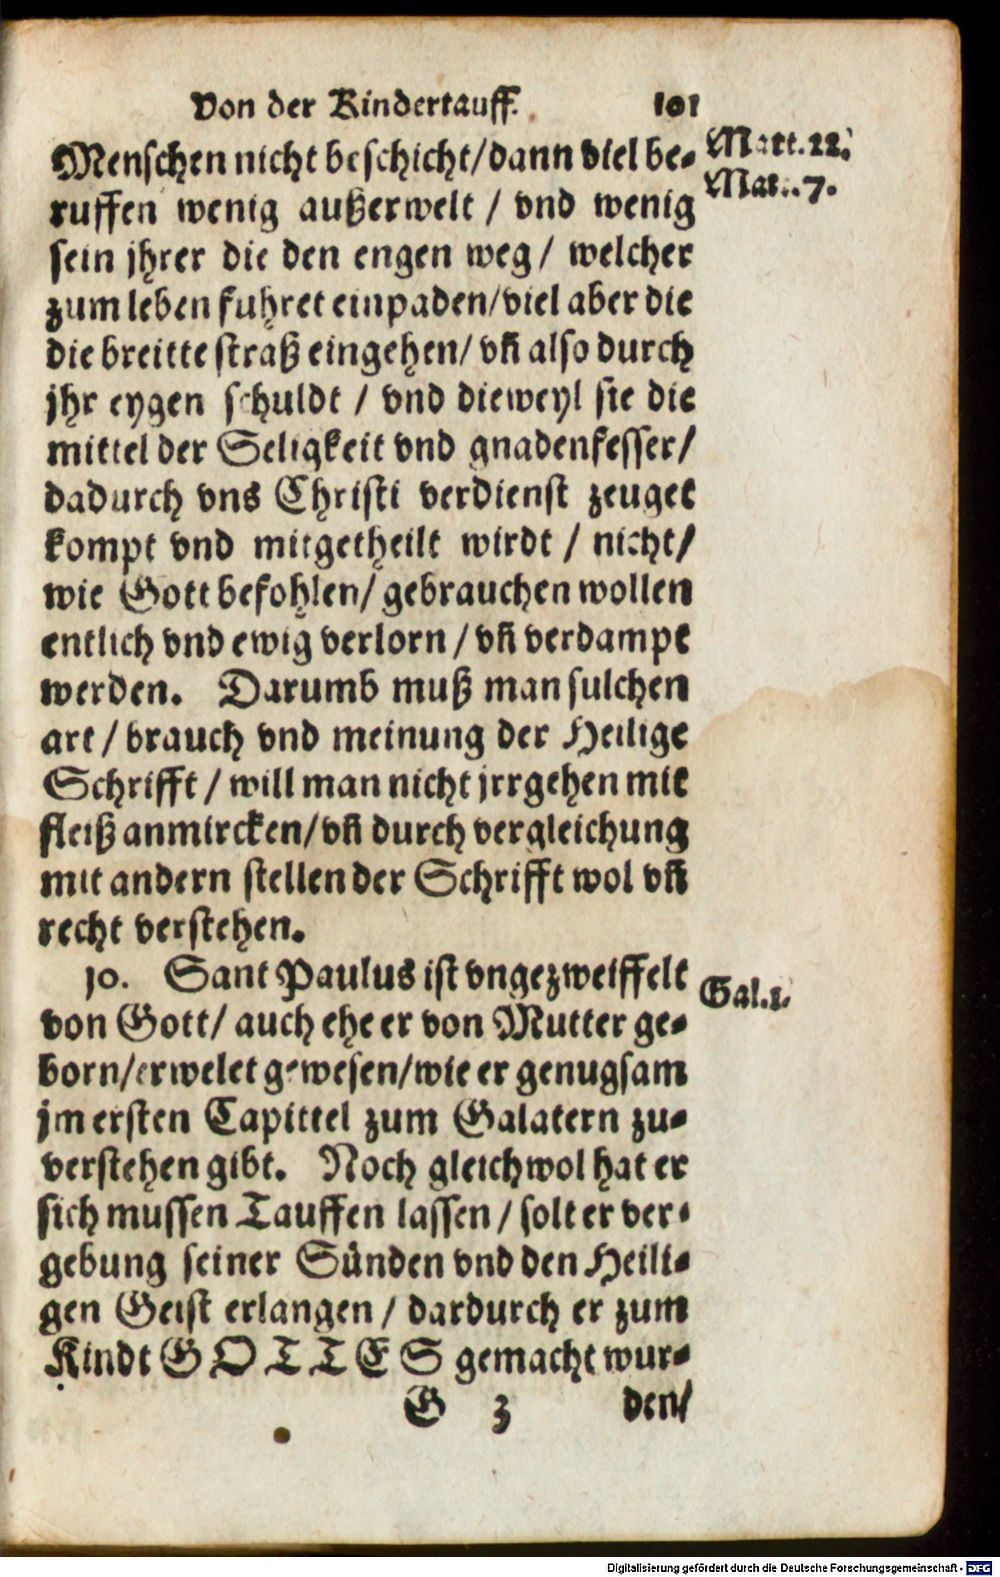 Von der Kindertauff. 101
Menschen nicht beschicht/dann viel be- Matt.22.
ruffen wenig außerwelt / vnd wenig Mat..7.
sein jhrer die den engen weg / welcher
zum leben fuhret einpaden/viel aber die
die breitte straß eingehen/ vñ also durch
jhr eygen schuldt / vnd dieweyl sie die
mittel der Seligkeit vnd gnadenfesser/
dadurch vns Christi verdienst zeuget
kompt vnd mitgetheilt wirdt / nicht/
wie Gott befohlen/ gebrauchen wollen
entlich vnd ewig verlorn / vñ verdampt
werden. Darumb muß man sulchen
art / brauch vnd meinung der Heilige
Schrifft / will man nicht jrrgehen mit
fleiß anmircken/vñ durch vergleichung
mit andern stellen der Schrifft wol vñ
recht verstehen.
10. Sant Paulus ist vngezweiffelt Gal.1.
von Gott/ auch ehe er von Mutter ge-
born/erwelet gewesen/wie er genugsam
jm ersten Capittel zum Galatern zu-
verstehen gibt. Noch gleichwol hat er
sich mussen Tauffen lassen / solt er ver-
gebung seiner Sünden vnd den Heili-
gen Geist erlangen / dardurch er zum
Kindt GOTTES gemacht wur-
G 3 den/
Digitalisierung gefördert durch die Deutsche Forschungsgemeinschaft - DFG